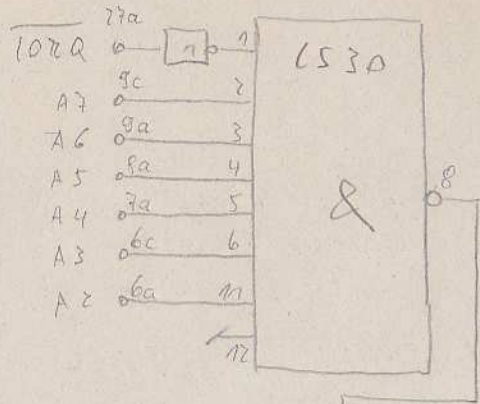 27a
IORQ 1 1 LS30
A7 9c 2
A6 9a 3
A5 8a 4
A4 7a 5 & 8
A3 6c 6
A2 6a 11
12